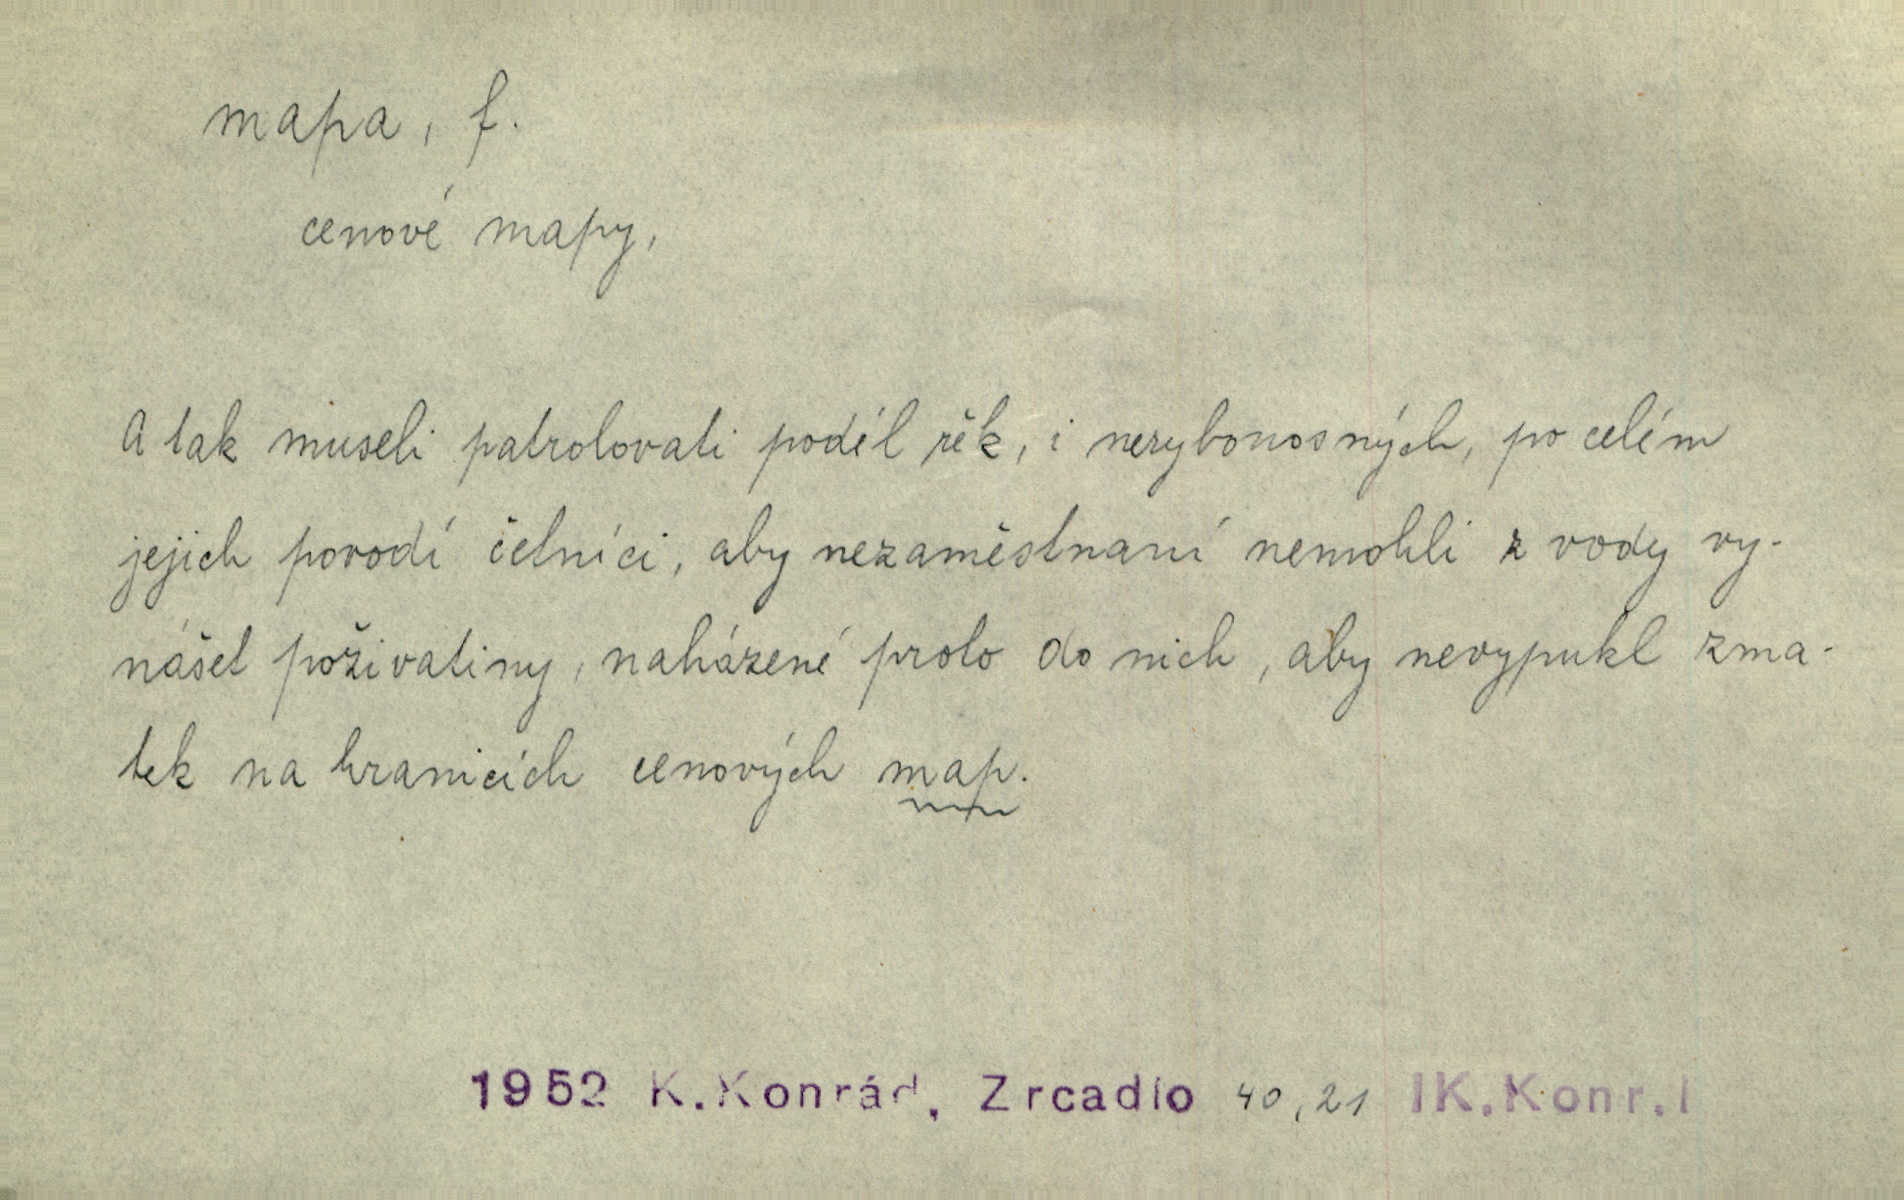 mapa, f.
cenové mapy,
A tak museli patrolovati podél řěk, i nerybonosných, po celém
jejich povodí četníci, aby nezaměstnaní nemohli z vody vy-
nášet poživatiny, naházené proto do nich, aby nevypukl zma-
tek na hranicích cenových map.
1952 K.Konrád, Zrcadlo 40,21 IK.Konr.I